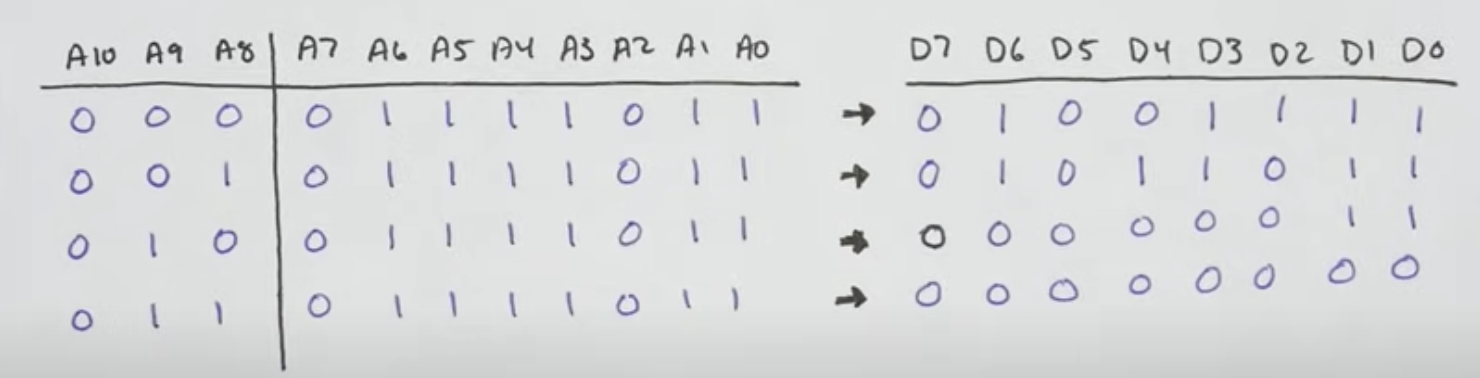 A10 A9 A8 A7 A6 A5 A4 A3 A2 A1 A0 D7 D6 D5 D4 D3 D2 D1 D0
0 0 0 0 1 1 1 1 0 1 1 → 0 1 0 0 1 1 1 1
0 0 1 0 1 1 1 1 0 1 1 → 0 1 0 1 1 0 1 1
0 1 0 0 1 1 1 1 0 1 1 → 0 0 0 0 0 0 1 1
0 1 1 0 1 1 1 1 0 1 1 → 0 0 0 0 0 0 0 0